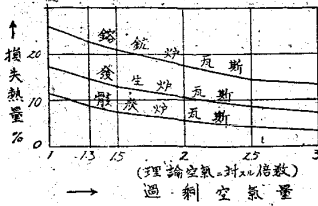 ↑
損失熱量 %
20
10
0
鎔鉱炉瓦斯
發生炉瓦斯
骸炭炉瓦斯
1 1.3 1.5 2 2.5 3
(理論空氣ニ対スル倍数)
→ 過剰空氣量